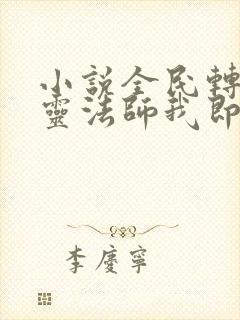 小說全民轉
靈法師我即
李慶寧